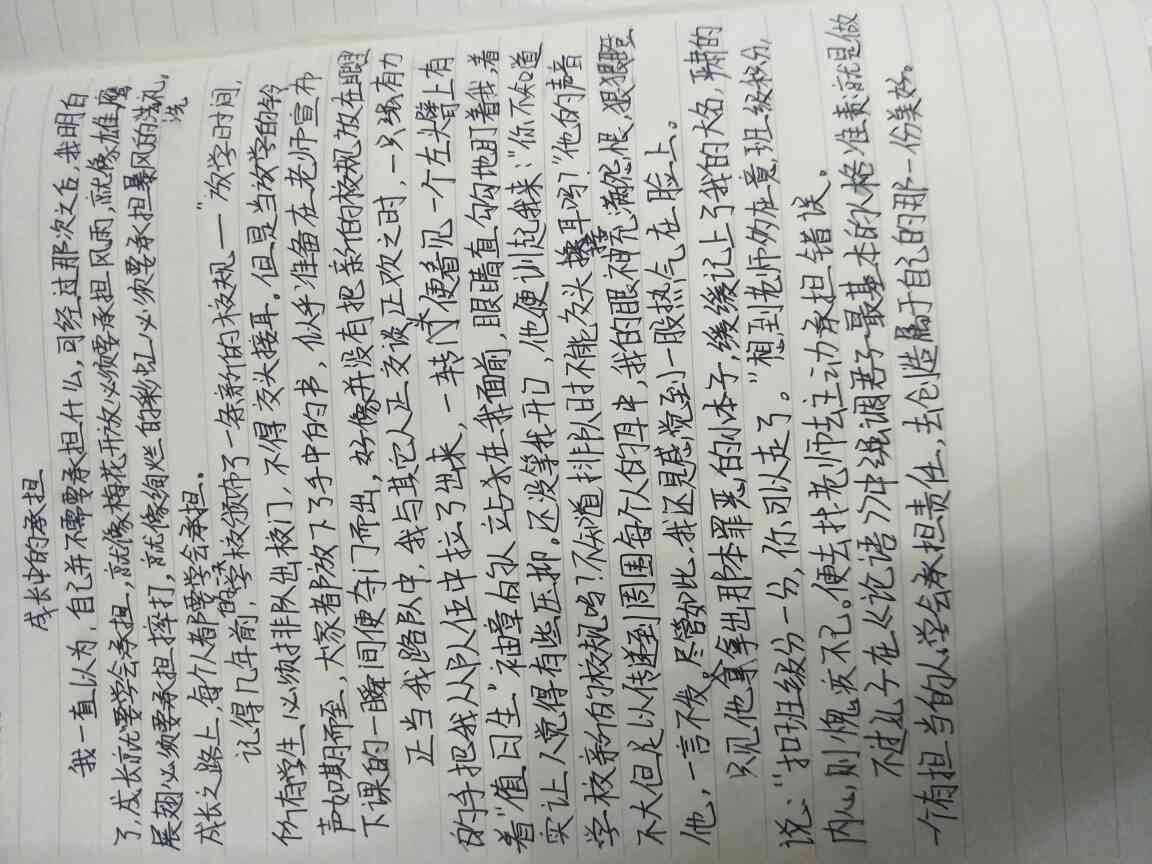 成长中的承担
我一直以为，自己并不需要承担什么，可经过那次之后，我明白
了，成长就要学会承担，就像梅花开放必须要承担风雨，就像雄鹰
展翅必须要承担摔打，就像绚烂的彩虹必须要承担暴风的洗礼，
成长之路上，每个人都要学会承担。
记得几年前，的学校颁布了一条新的校规——"放学时间，
所有学生，必须排队出校门，不得交头接耳。但是当放学的铃
声如期而至，大家都放下了手中的书，似乎准备在老师宣布
下课的一瞬间便夺门而出，好像并没有把新的校规放在眼里
正当我路队中，我与其它人正交谈正欢之时，一只强有力
的手把我从队伍中拉了出来，一转个便看见一个左头臂上有
着"值日生"袖章的人站杀在我面前，眼睛直勾勾地盯着我，着
实让人觉得有些压抑。还没等我开口，他便训起我来："你不知道
学校新的校规吗？不知道排队时不能交头接耳吗？"他的声音
不大但足以传递到周围每个人的耳中，我的眼神充满怨恨，狠狠瞪
他，一言不发，尽管如此，我还是感觉到一股热气在脸上。
只见他拿出那本罪恶的小本子，缓缓记上了我的大名，肃的
说："扣班级分一分，你可以走了。"想到老师多么在意班级积分，
内心则愧疚不已。便去找老师去主动承担错误。
不过孔子在《论语》中强调君子最基本的人格准责就是做
一个有担当的人，学会承担责任，去创造属于自己的那一份美好。